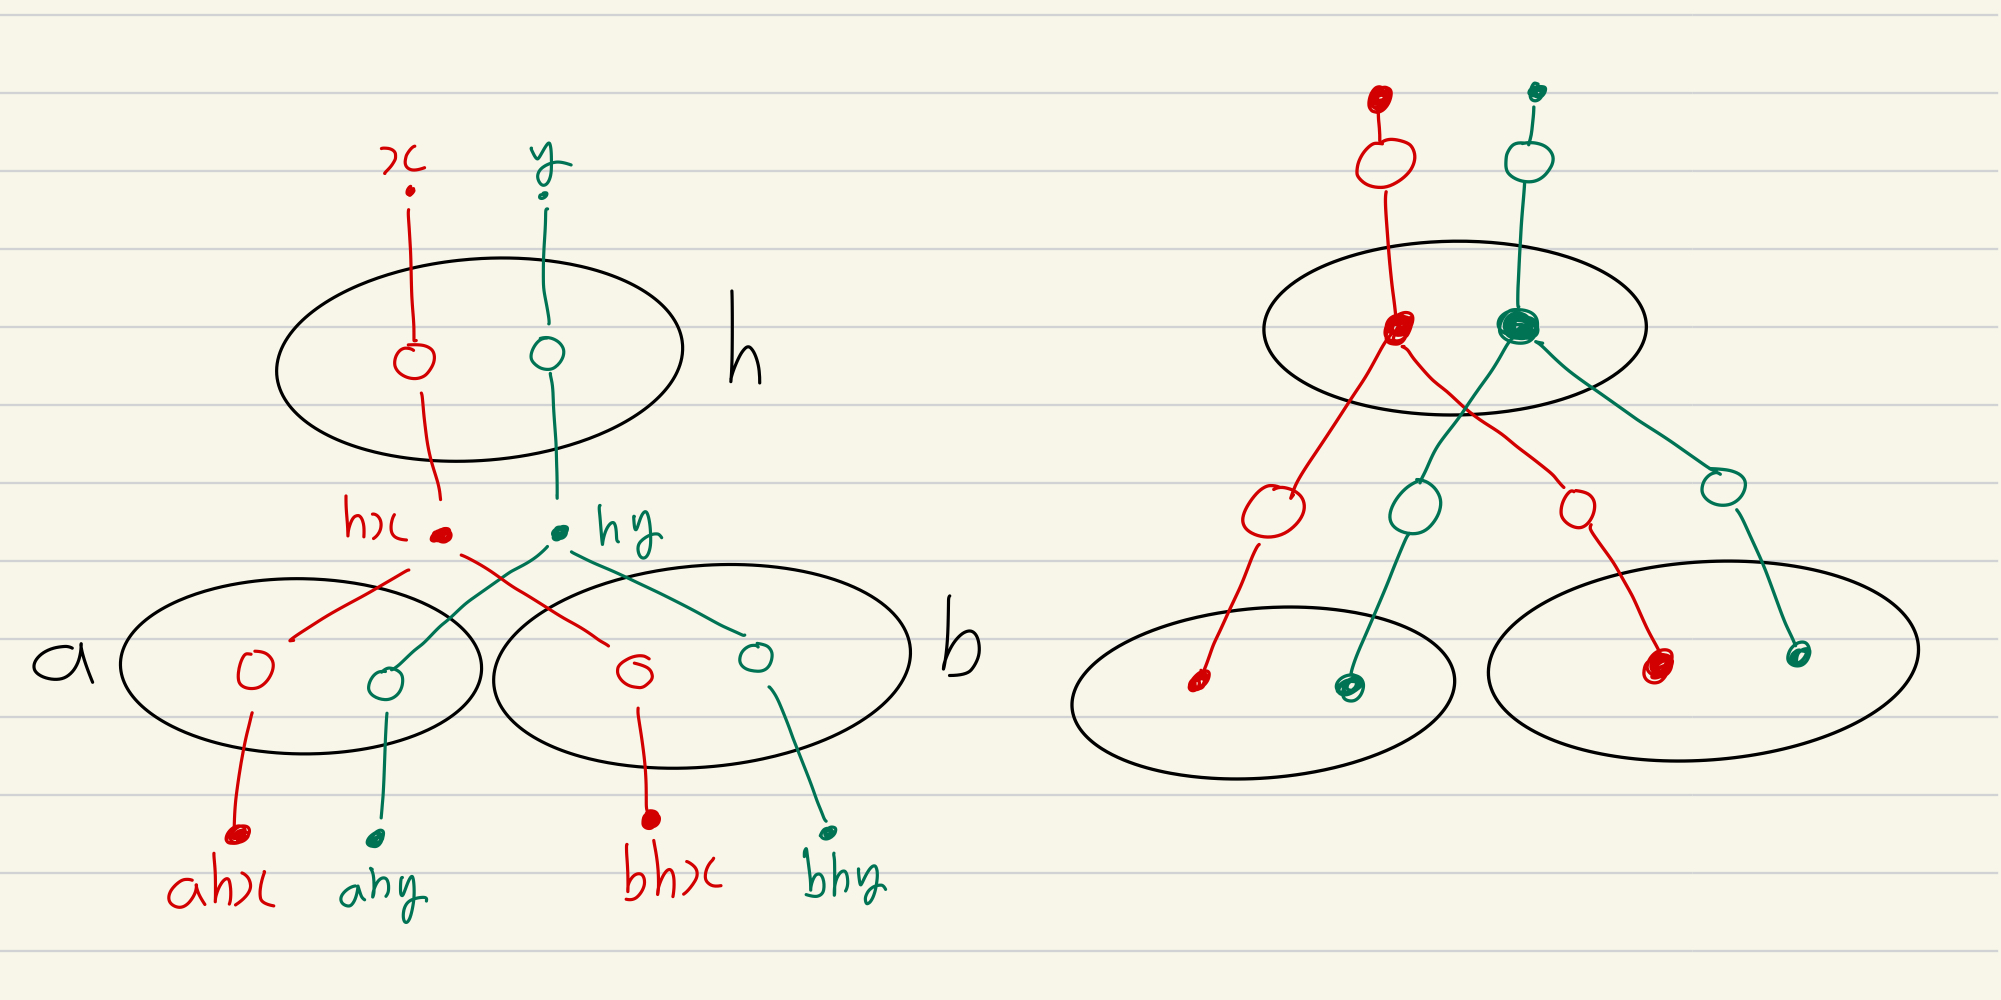 x y
h
hx hy
a b
ahx ahy bhx bhy